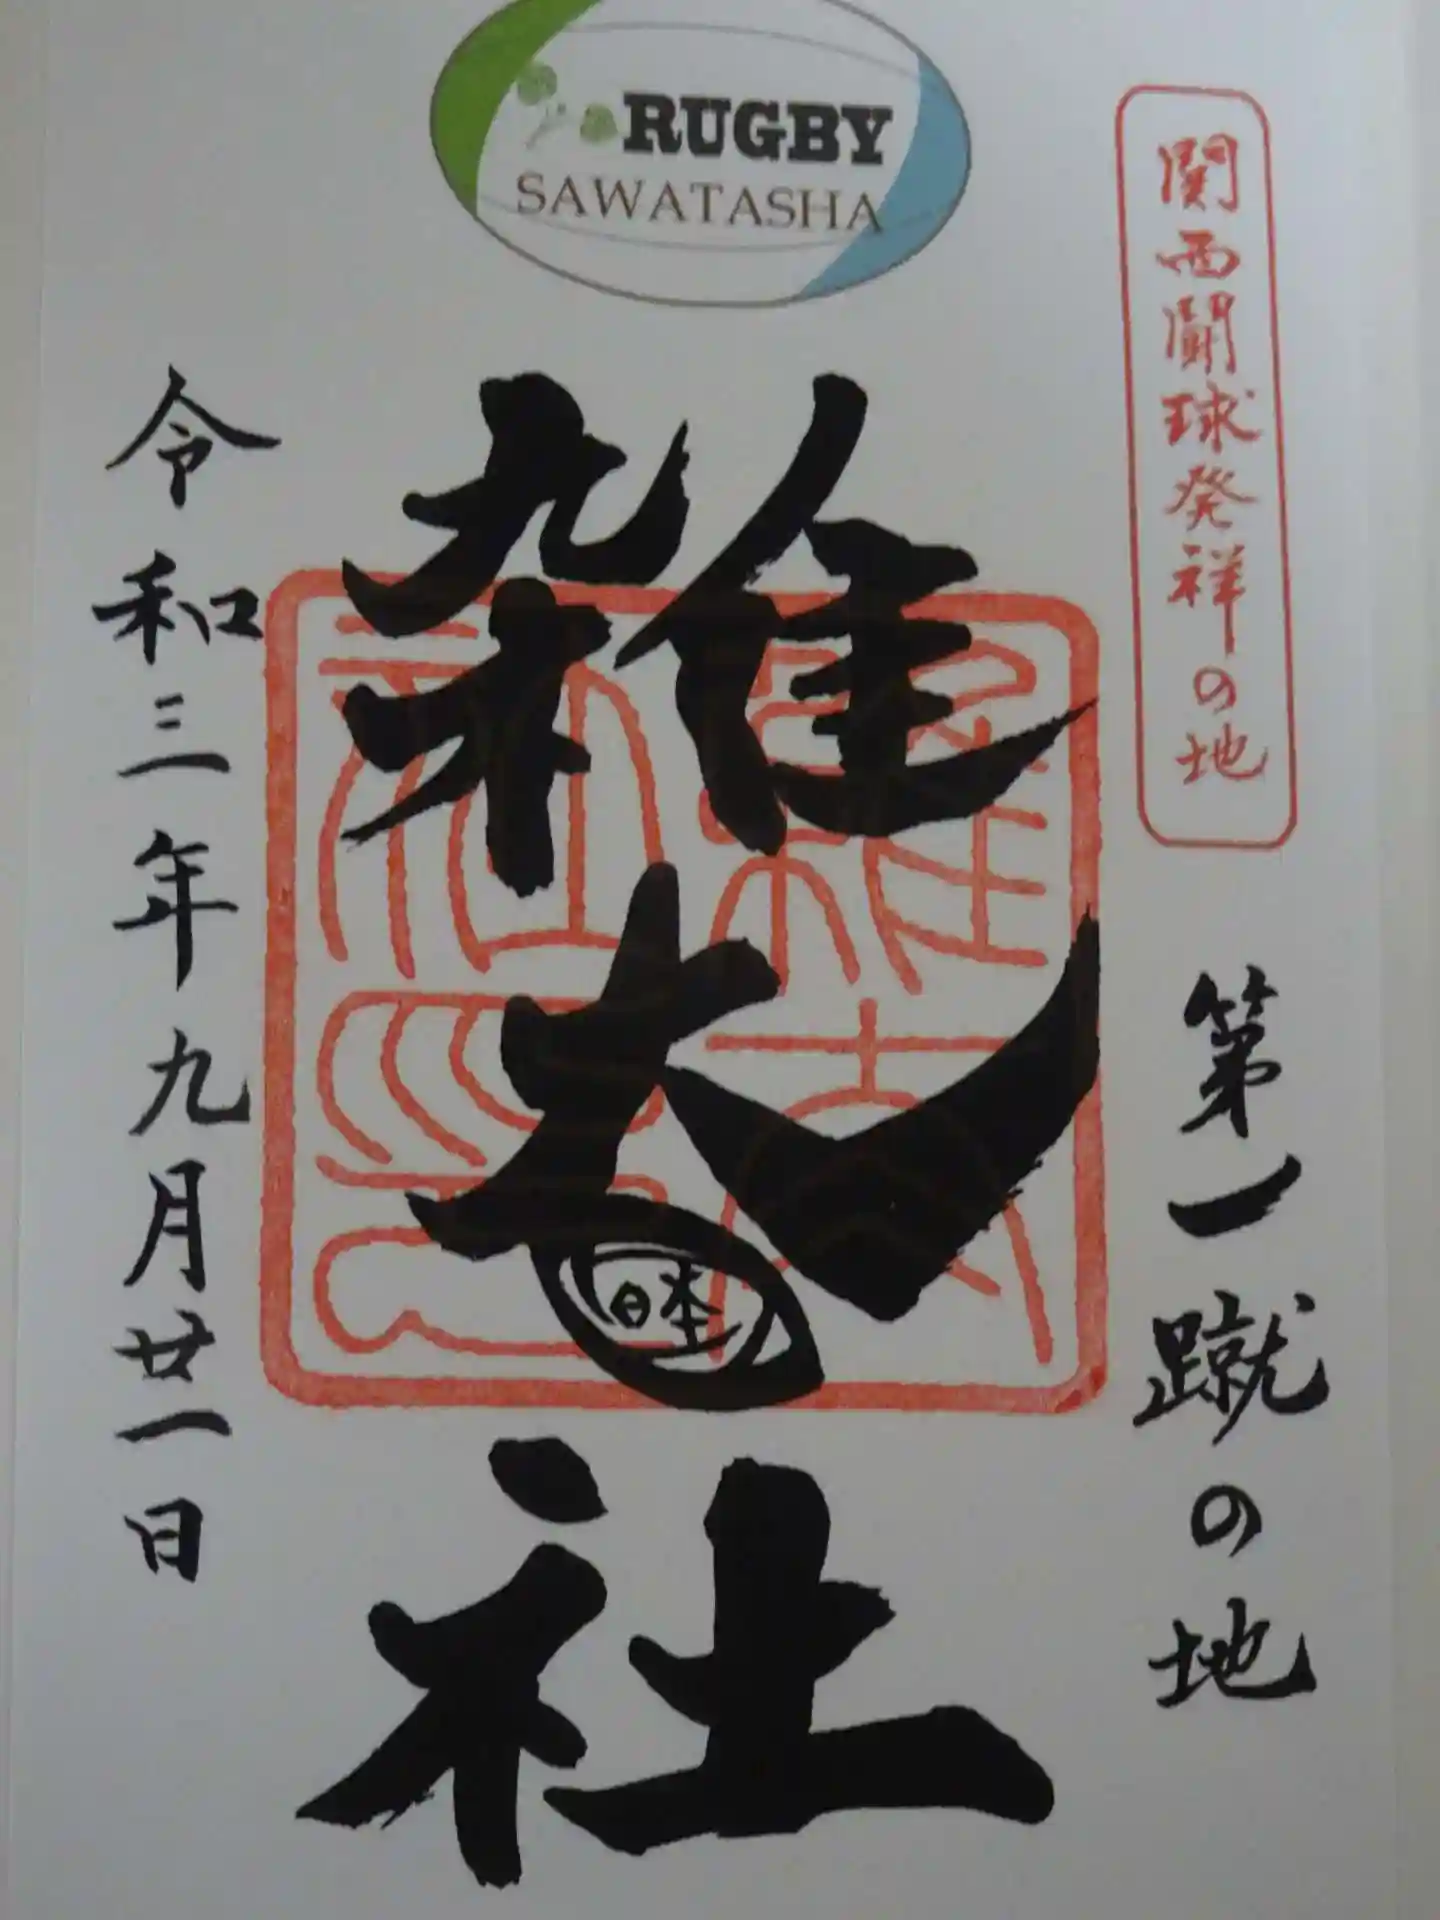 RUGBY
SAWATASHA
関西闘球発祥の地
第一蹴の地
雑太社
日本
令和三年九月廿一日